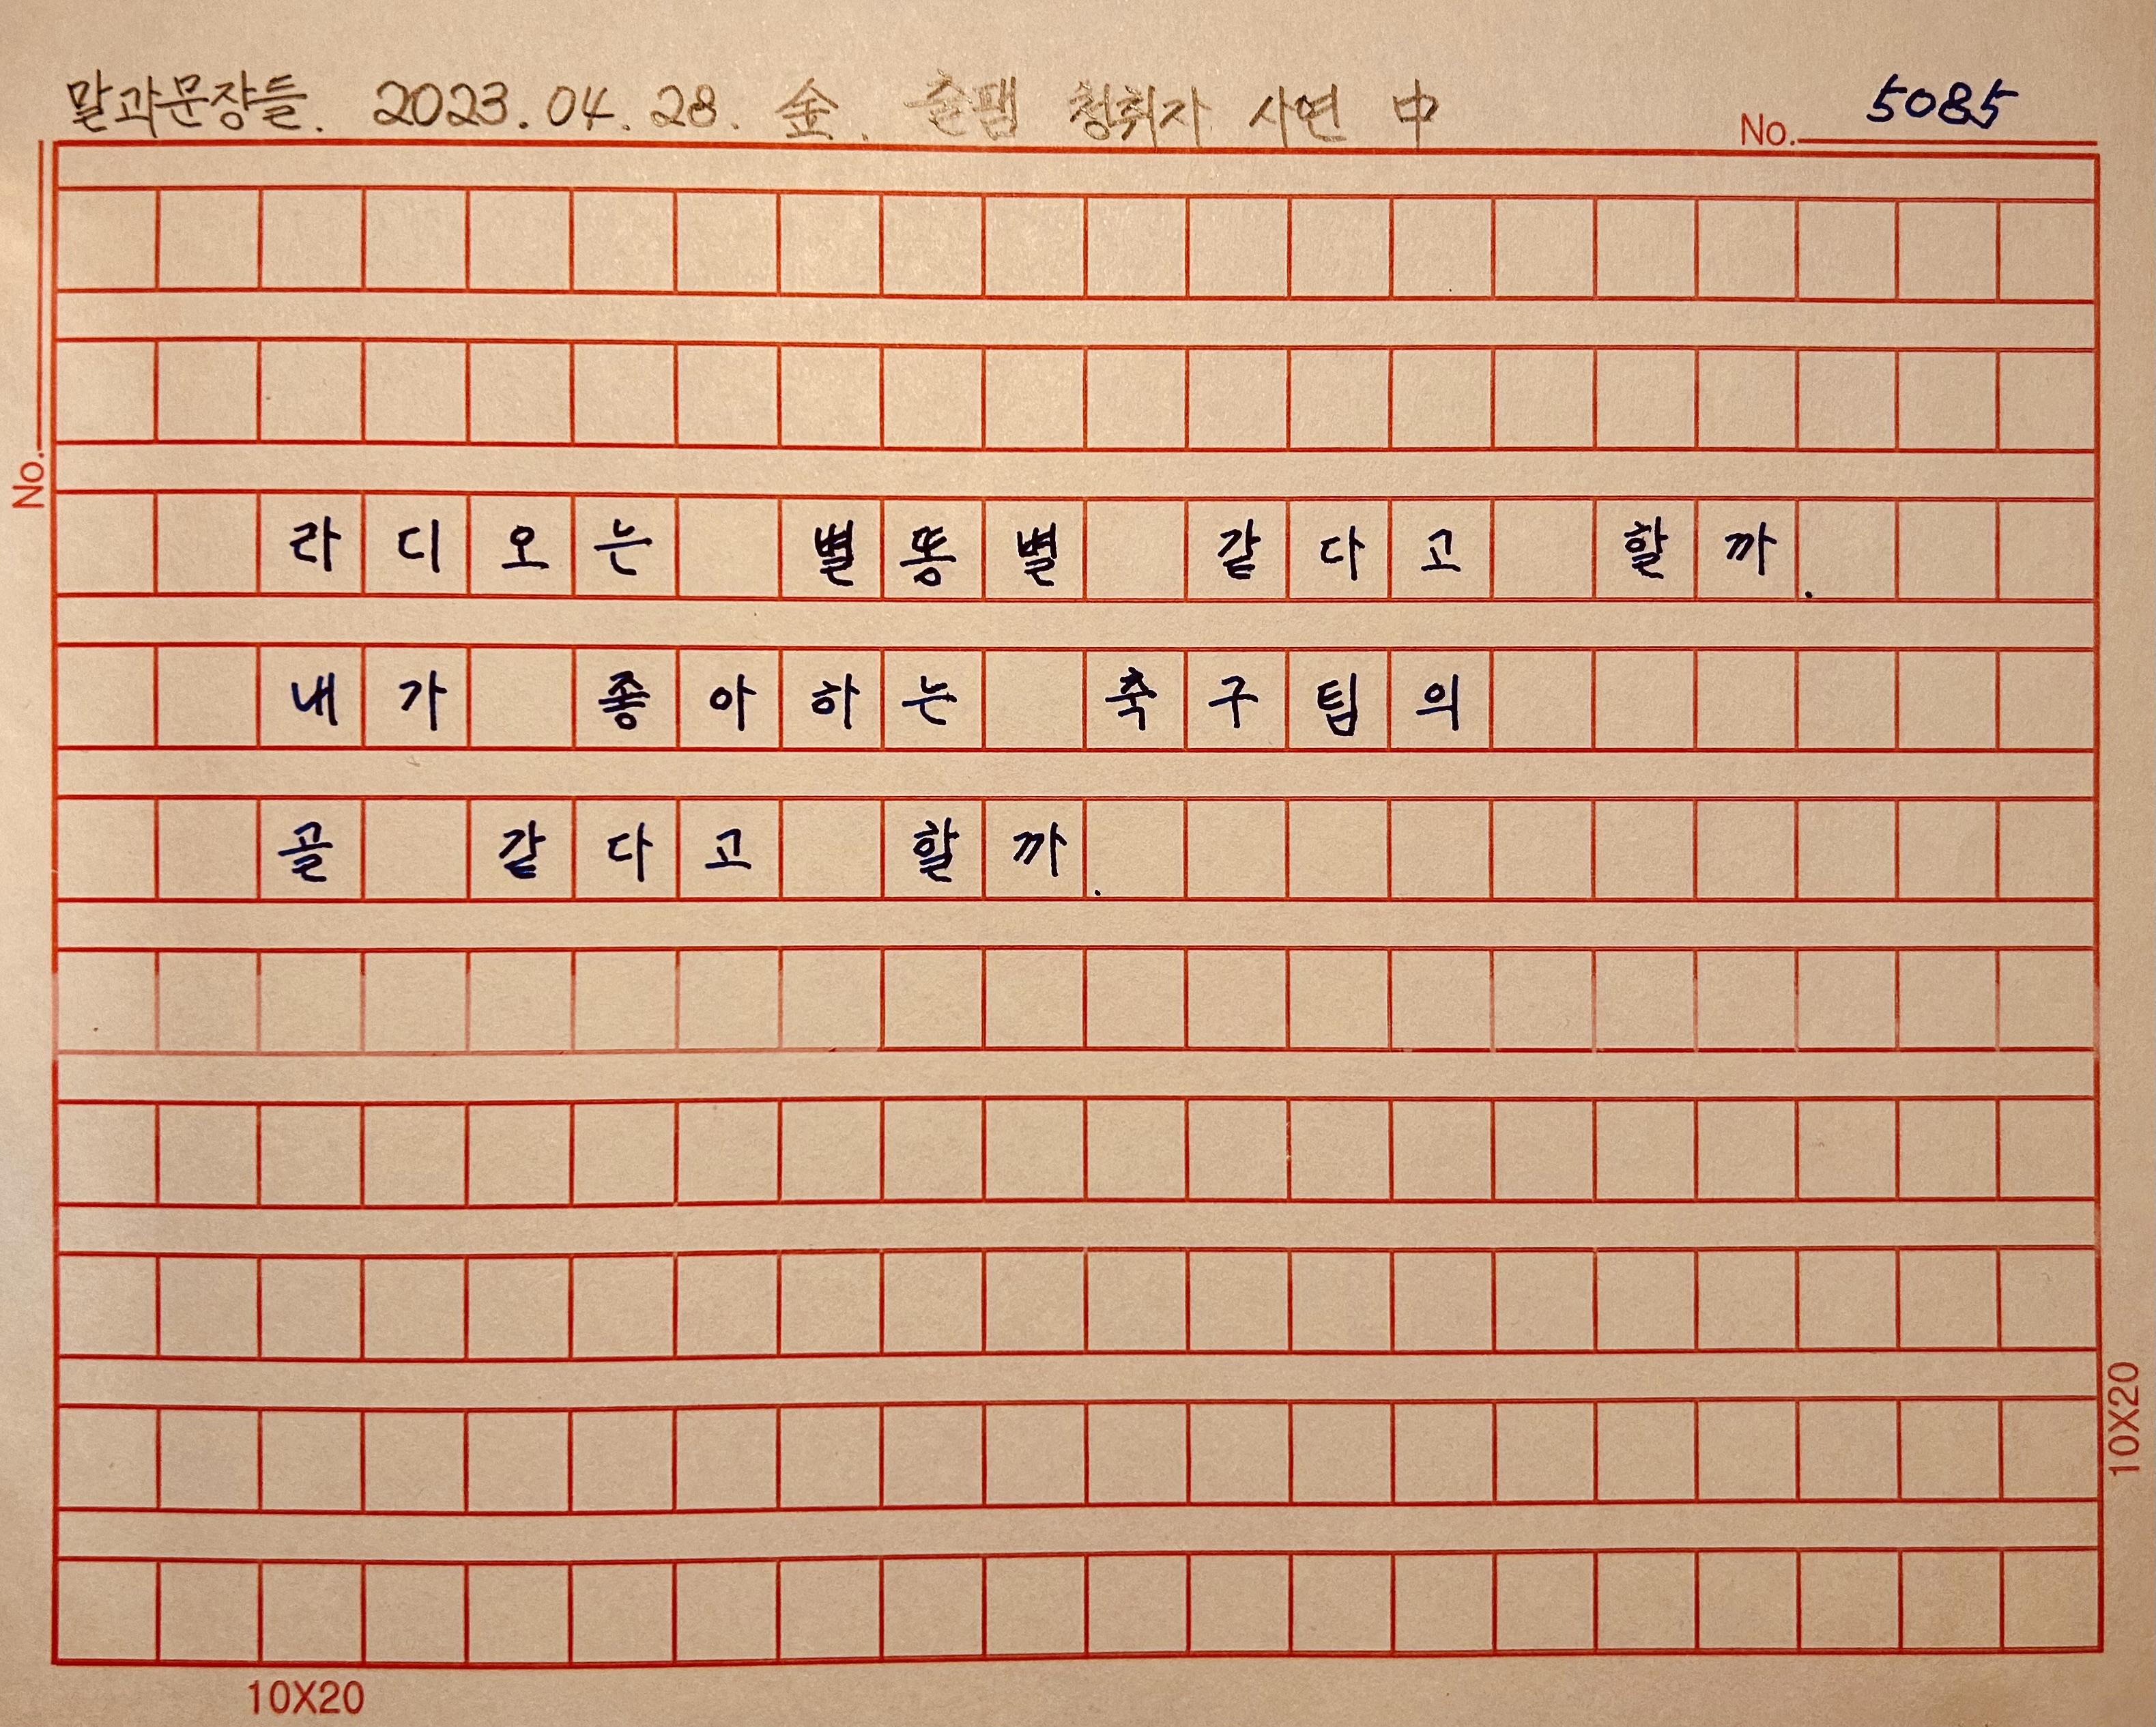 말과문장들. 2023. 04. 28. 金. 숲팸 청취자 사연 中
No. 5085
No.
라디오는 별똥별 같다고 할까.
내가 좋아하는 축구팀의
골 같다고 할까.
10X20
10X20